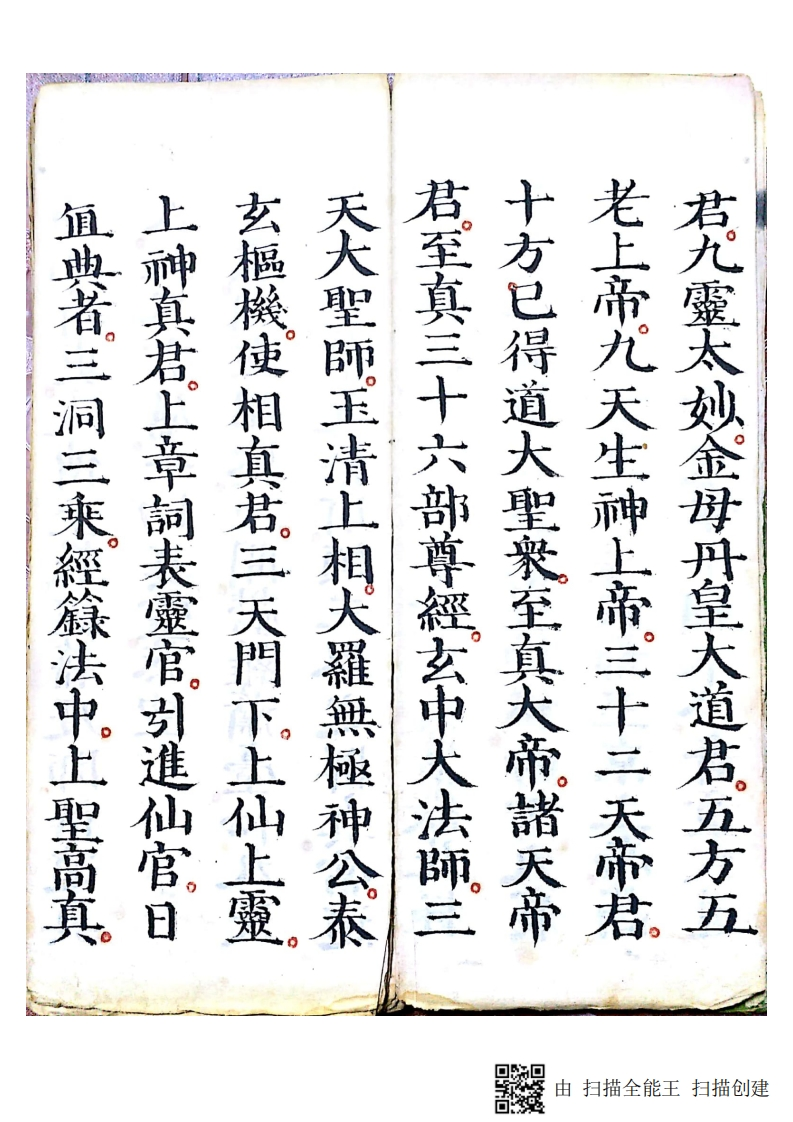 君。九靈太妙。金母丹皇大道君。五方五
老上帝。九天生神上帝。三十二天帝君。
十方。已得道大聖衆。至真大帝。諸天帝
君。至真三十六部尊經。玄中大法師。三
天大聖師。玉清上相。大羅無極神公。泰
玄樞機。使相真君。三天門下。上仙上靈。
上神真君。上章詞表靈官。引進仙官。日
值典者。三洞三乘。經籙法中。上聖高真。
由 扫描全能王 扫描创建